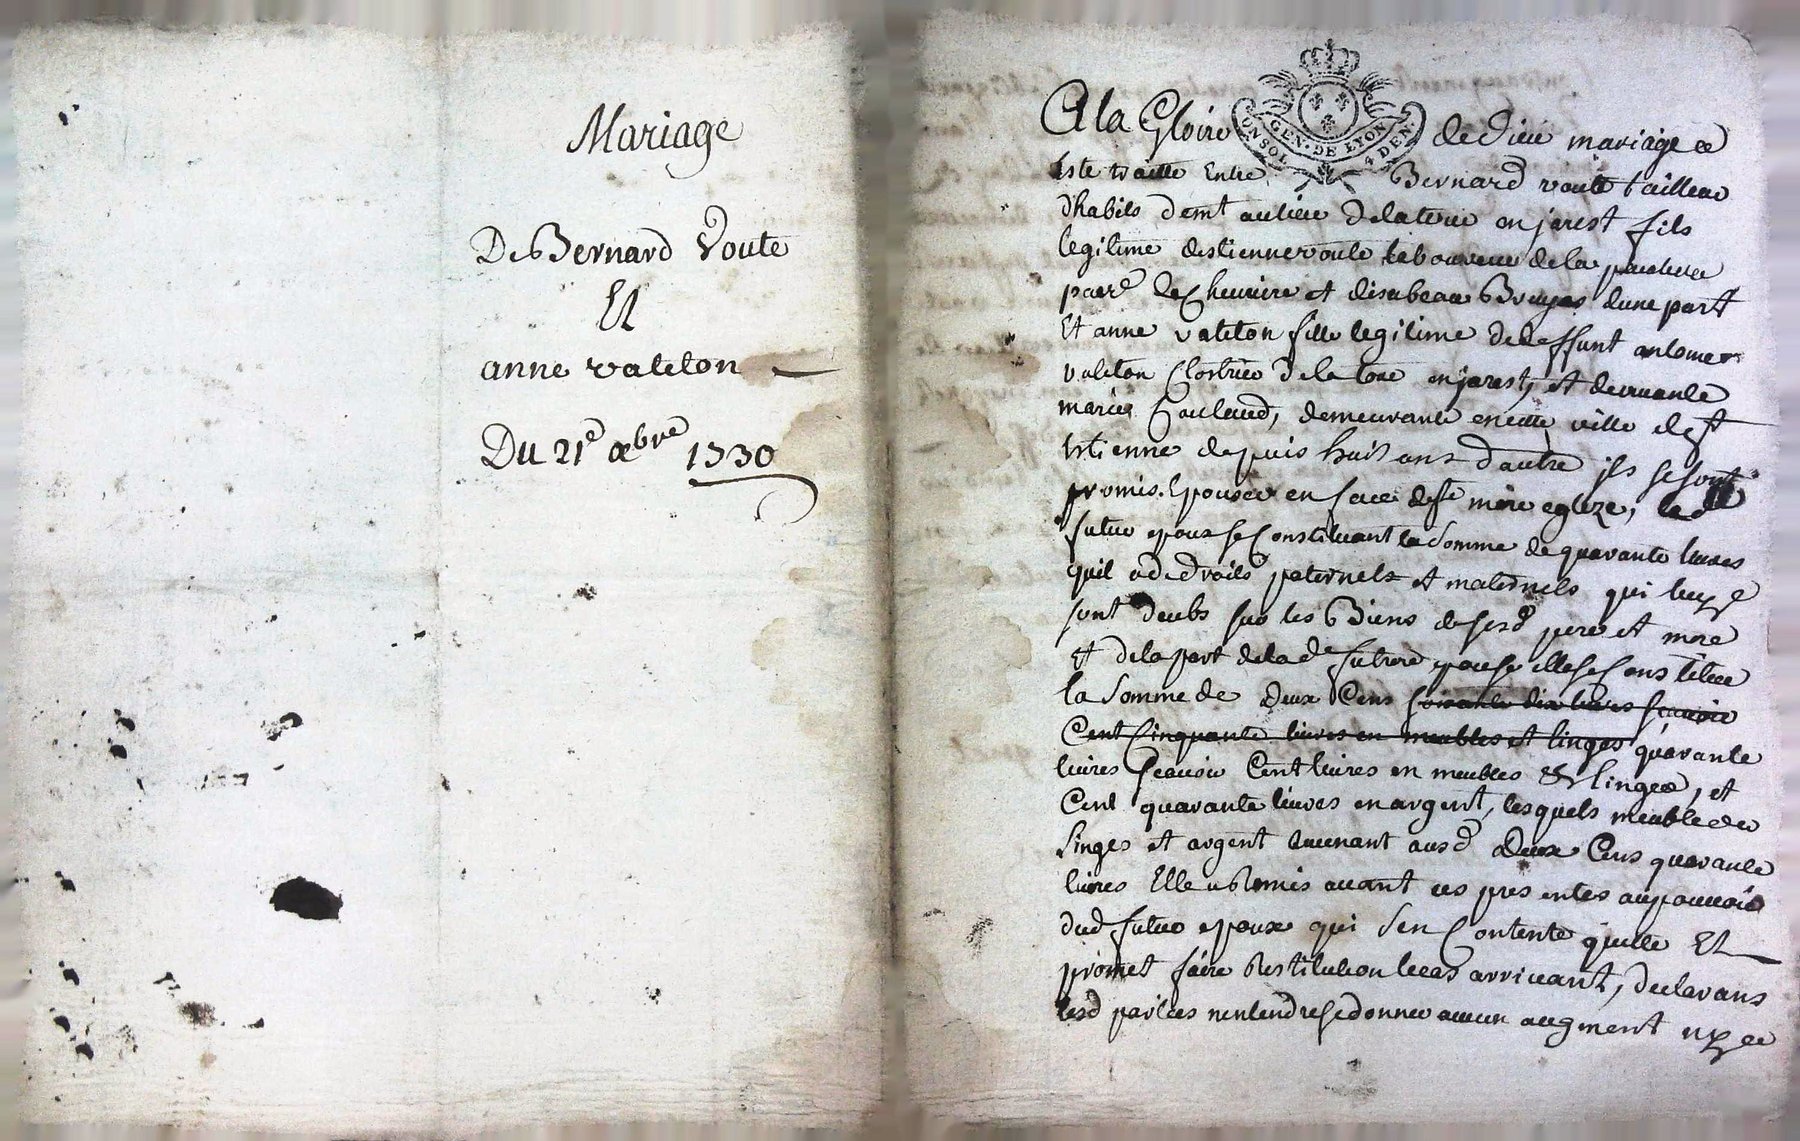 Mariage
De Bernard Voute
Et
anne valeton
Du 21e 8bre 1730
GEN. DE LYON
UN SOL 4 DEN
A la Gloire de dieu mariage a
este traitte Entre Bernard voute tailleur
d'habits demt au lieu de la tour en jarest fils
legitime destienne voute laboureur de la
parr de et disabeau dune part
Et anne valeton fille legitime de deffunt antoine
valeton de la tour en jarest et de vivante
marie demeurante en cette ville de st
estienne depuis huit ans d'autre ils se sont
promis Epouser en face de ste mere eglize, led
futur epoux se Constituant la somme de quarante livres
quil a de droits paternels et maternels qui luy
sont deubs sur les Biens de sesd pere et mere
Et de la part de lade future epouse elle se Constitue
la somme de deux Cens soixante dix livres scavoir
Cent Cinquante livres en meubles et linges quarante
livres scavoir Cent livres en meubles & linges, et
Cent quarante livres en argent, lesquels meubles
linges et argent revenant ausd deux Cens quarante
livres Elle a remis avant ces presentes au pouvoir
dud futur epoux qui s'en Contente quitte Et
promet faire restitution le cas arrivant, declarans
lesd parties nentendre se donner aucun augment ny